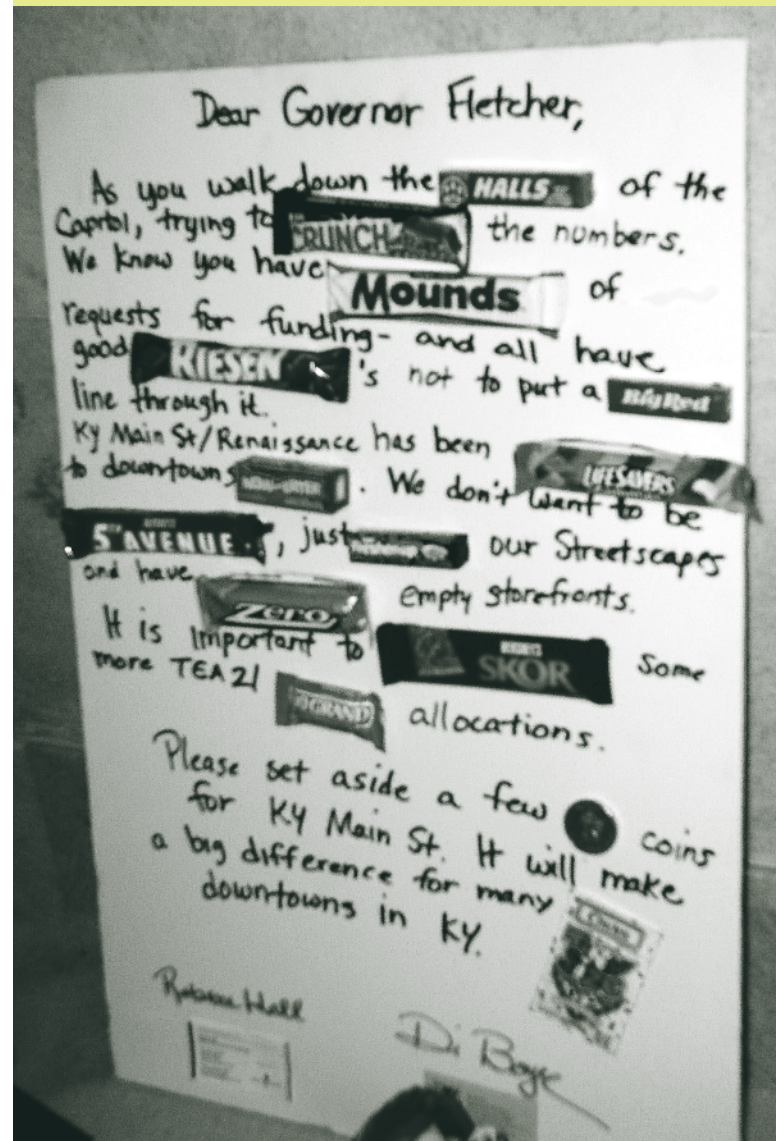 Dear Governor Fletcher,
As you walk down the HALLS of the
Capitol, trying to CRUNCH the numbers.
We know you have Mounds of
requests for funding- and all have
good RIESEN 's not to put a Big Red
line through it.
Ky Main St/Renaissance has been LIFESAVERS
to downtowns . We don't want to be
5TH AVENUE, just our Streetscapes
and have Zero empty storefronts.
It is important to SKOR some
more TEA21 GRAND allocations.
Please set aside a few coins
for KY Main St. It will make
a big difference for many
downtowns in KY.
Hall
Di